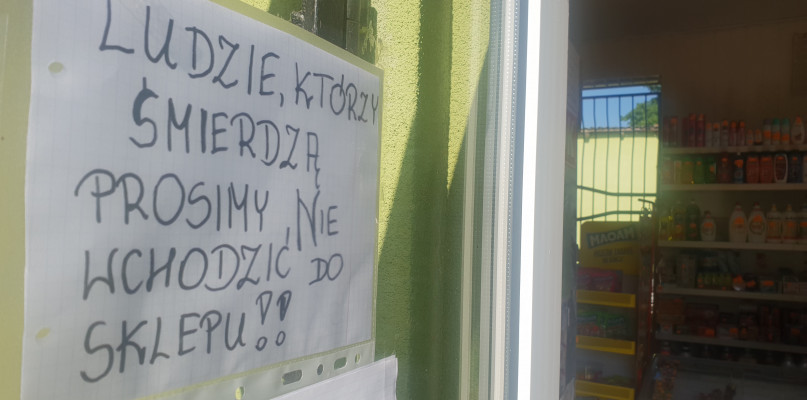 LUDZIE, KTÓRZY
ŚMIERDZĄ
PROSIMY, NIE
WCHODZIĆ DO
SKLEPU!!
MAOAM